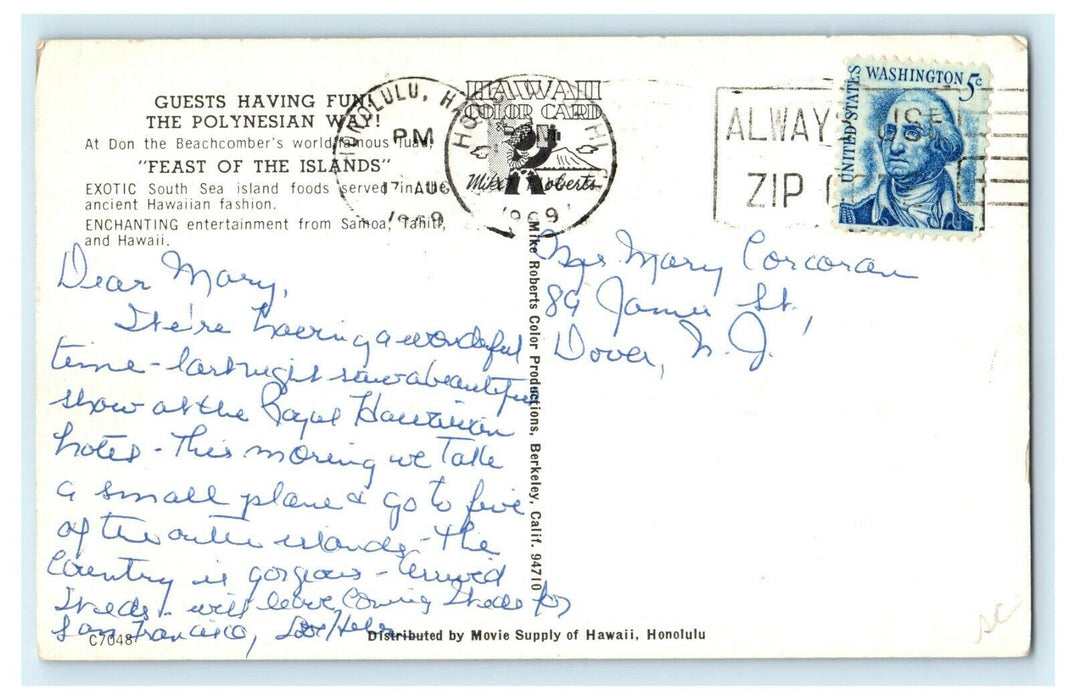 GUESTS HAVING FUN!
THE POLYNESIAN WAY!
At Don the Beachcomber's world famous luau,
"FEAST OF THE ISLANDS"
EXOTIC South Sea island foods served in
ancient Hawaiian fashion.
ENCHANTING entertainment from Samoa, Tahiti,
and Hawaii.
HONOLULU, H
PM
17 AUG
1969
HAWAII
COLOR CARD
Mike Roberts
1969
ALWAYS USE
ZIP
UNITED STATES
WASHINGTON 5c
Dear Mary,
We're having a wonderful
time - last night saw a beautiful
show at the Royal Hawaiian
hotel - This morning we take
a small plane & go to five
of the outer islands - the
country is gorgeous -
will leave Coming for
San Francisco, Love Helen
Mrs Mary Corcoran
89 James St.,
Dover, N. J.
Mike Roberts Color Productions, Berkeley, Calif. 94710
C7048
Distributed by Movie Supply of Hawaii, Honolulu
sc